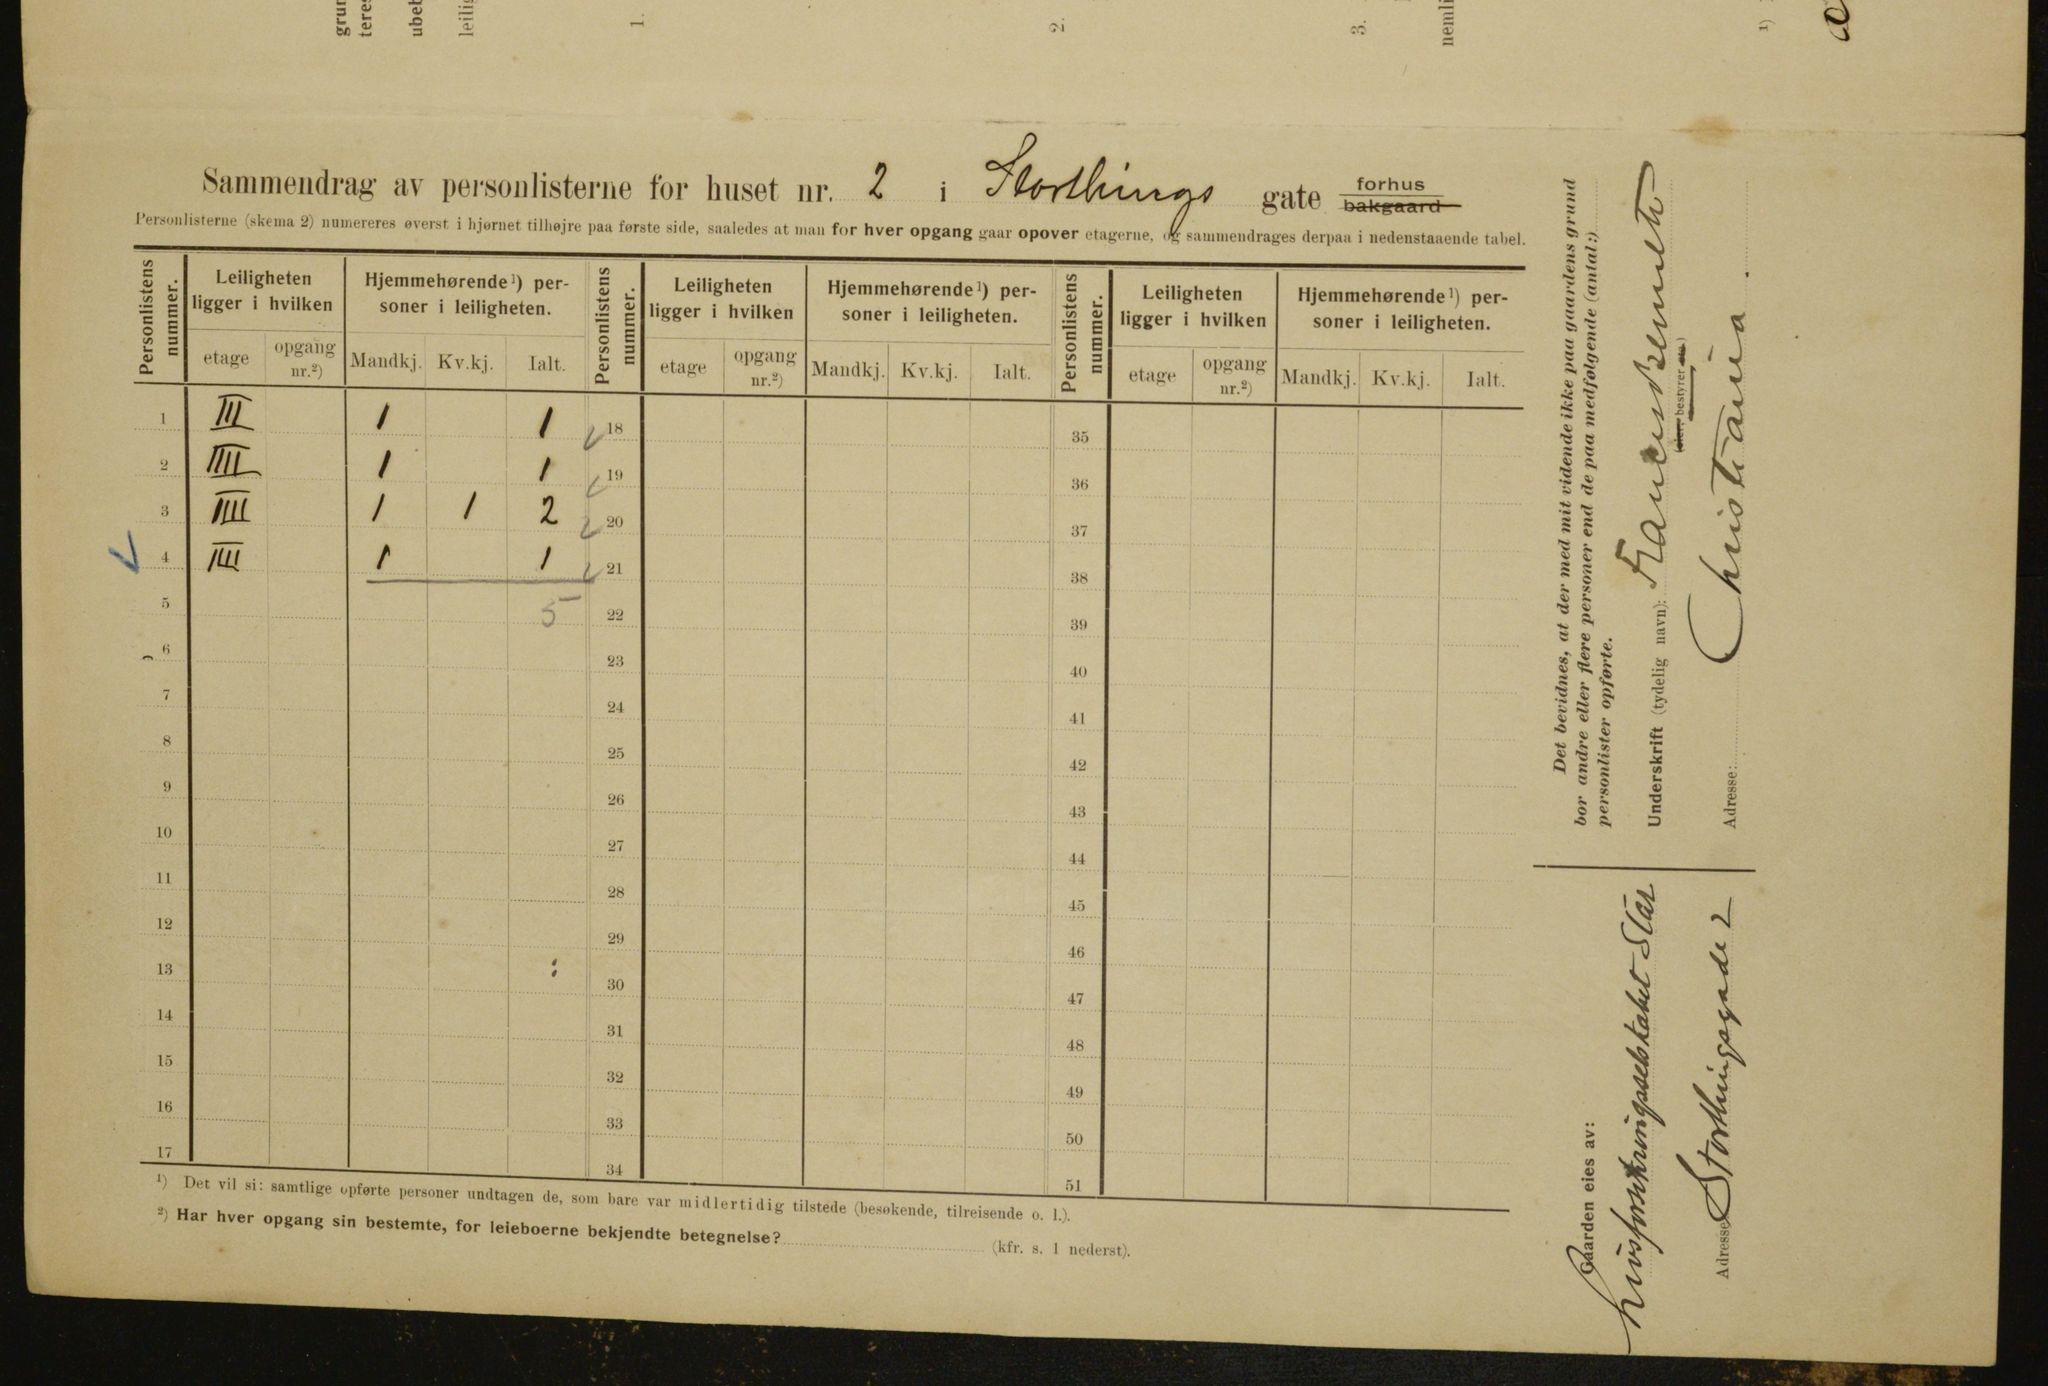 grun
teres
ubeb
leilig
1.
2.
3.
nemli
1)
Sammendrag av personlisterne for huset nr. 2 i Storthings gate forhus
bakgaard
Personlisterne (skema 2) numereres øverst i hjørnet tilhøjre paa første side, saaledes at man for hver opgang gaar opover etagerne, og sammendrages derpaa i nedenstaaende tabel.
Personlistens nummer. Leiligheten ligger i hvilken Hjemmehørende ¹) personer i leiligheten. Personlistens nummer. Leiligheten ligger i hvilken Hjemmehørende ¹) personer i leiligheten. Personlistens nummer. Leiligheten ligger i hvilken Hjemmehørende ¹) personer i leiligheten.
etage opgang nr.²) Mandkj. Kv.kj. Ialt. etage opgang nr.²) Mandkj. Kv.kj. Ialt. etage opgang nr.²) Mandkj. Kv.kj. Ialt.
1 III 1 1 18 35
2 IIII 1 1 19 36
3 IIII 1 1 2 20 37
4 III 1 1 21 38
5 5 22 39
6 23 40
7 24 41
8 25 42
9 26 43
10 27 44
11 28 45
12 29 46
13 30 47
14 31 48
15 32 49
16 33 50
17 34 51
¹) Det vil si: samtlige opførte personer undtagen de, som bare var midlertidig tilstede (besøkende, tilreisende o. l.).
²) Har hver opgang sin bestemte, for leieboerne bekjendte betegnelse? (kfr. s. 1 nederst).
Det bevidnes, at der med mit vidende ikke paa gaardens grund
bor andre eller flere personer end de paa medfølgende (antal:)
personlister opførte.
Underskrift (tydelig navn):
(eier, bestyrer etc.)
Adresse: Christiania.
Gaarden eies av:
Livsforsikringsselskabet Star
Adresse: Storthingsgade 2